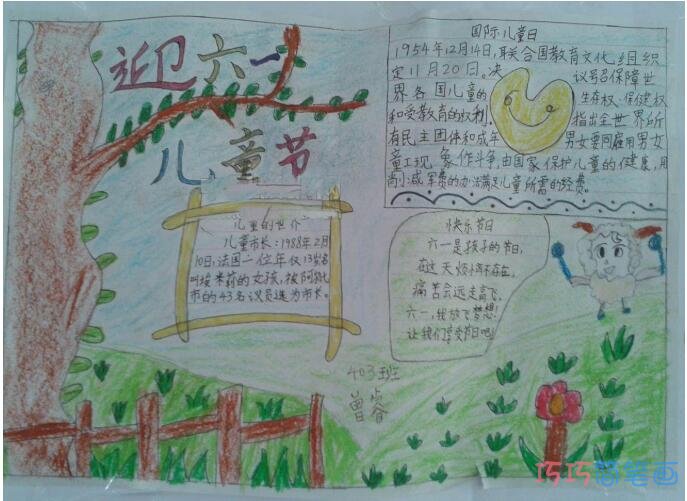 迎六一
儿童节
国际儿童日
1954年12月14日,联合国教育文化组织
定11月20日。决 议号召保障世
界各国儿童的 生存权、保健权
和受教育的权利。 指出全世界所
有民主团体和成年 男女要同雇用男女
童工现象作斗争,由国家保护儿童的健康,用
削减军费的办法满足儿童所需的经费。
儿童的世介
儿童市长:1988年2月
10日,法国一位年仅13岁名
叫埃米莉的女孩,被阿
市的43名议员选为市长。
快乐节日
六一是孩子的节日,
在这天烦恼不存在,
痛苦会远走高飞。
六一,我放飞梦想!
让我们享受节日吧!
403班
曾睿
巧巧简笔画